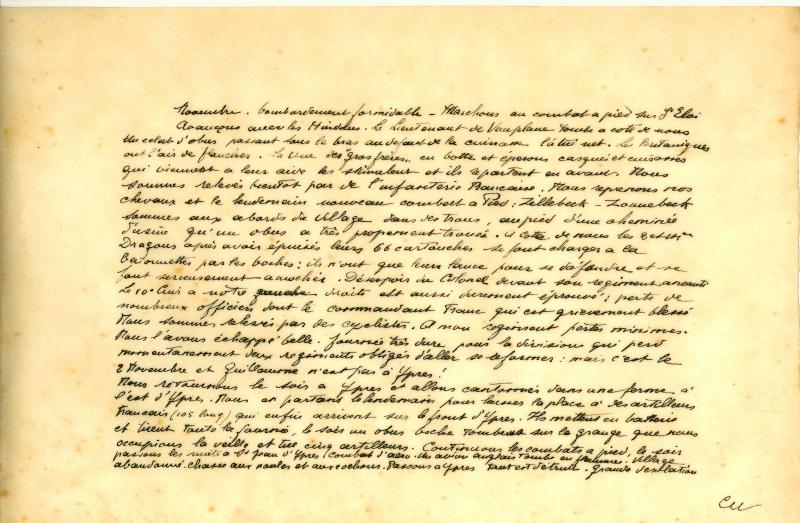 Novembre. bombardement formidable - Marchons au combat à pied sur St Eloi
Avançons avec les Hindous. Le Lieutenant de Vauplane tombe à coté de nous
Un eclat d'obus passant sous le bras au defaut de la cuirasse l'a tué net. Les Britaniques
ont l'air de flancher. La vue des "gros frères" en botte et éperons casqués et cuirassés
qui viennent a leur aide les stimulent et ils repartent en avant. Nous
sommes relevés bientot par de l'infanterie Francaise. Nous reprenons nos
chevaux et le lendemain nouveau combat à Pied: Zillebeck - Zonnebeck
sommes aux abords du village dans des trous, au pied d'une cheminée
d'usine qu'un obus a très proprement trouée. A coté de nous les
Dragons après avoir épuisés leurs 66 cartouches se font charger a la
Baïonnettes par les boches: ils n'ont que leur lance pour se défendre et se
font serieusement amochés. Désespoir du Colonel devant son regiment anéanti
Le 10e Cuirs a notre gauche droite est aussi durement éprouvé: perte de
nombreux officiers dont le commandant Franc qui est grievement blessé
Nous sommes relevés par des cyclistes. A mon regiment pertes minimes.
Nous l'avons échappé belle. Journée très dure pour la division qui perd
momentanement deux regiments obligés d'aller se reformer: mais c'est le
2 Novembre et Guillaume n'est pas à Ypres!
Nous retournons le soir a Ypres et allons cantonner dans une ferme à
l'est d'Ypres. Nous en partons le lendemain pour laisser la place à des artilleurs
Francais (105 long) qui enfin arrivent sur le front d'Ypres. Ils mettent en batterie
et tirent toute la journée, le soir un obus boche tombe sur la grange que nous
occupions la veille et tue cinq artilleurs. Continuons les combats a pied, le soir
passons les nuits a St Jean d'Ypres (combat d'aero. Un avion anglais tombe en flammes. Village
abandonné. chasse aux poules et aux cochons. Passons à Ypres tout est détruit. Grande desolation